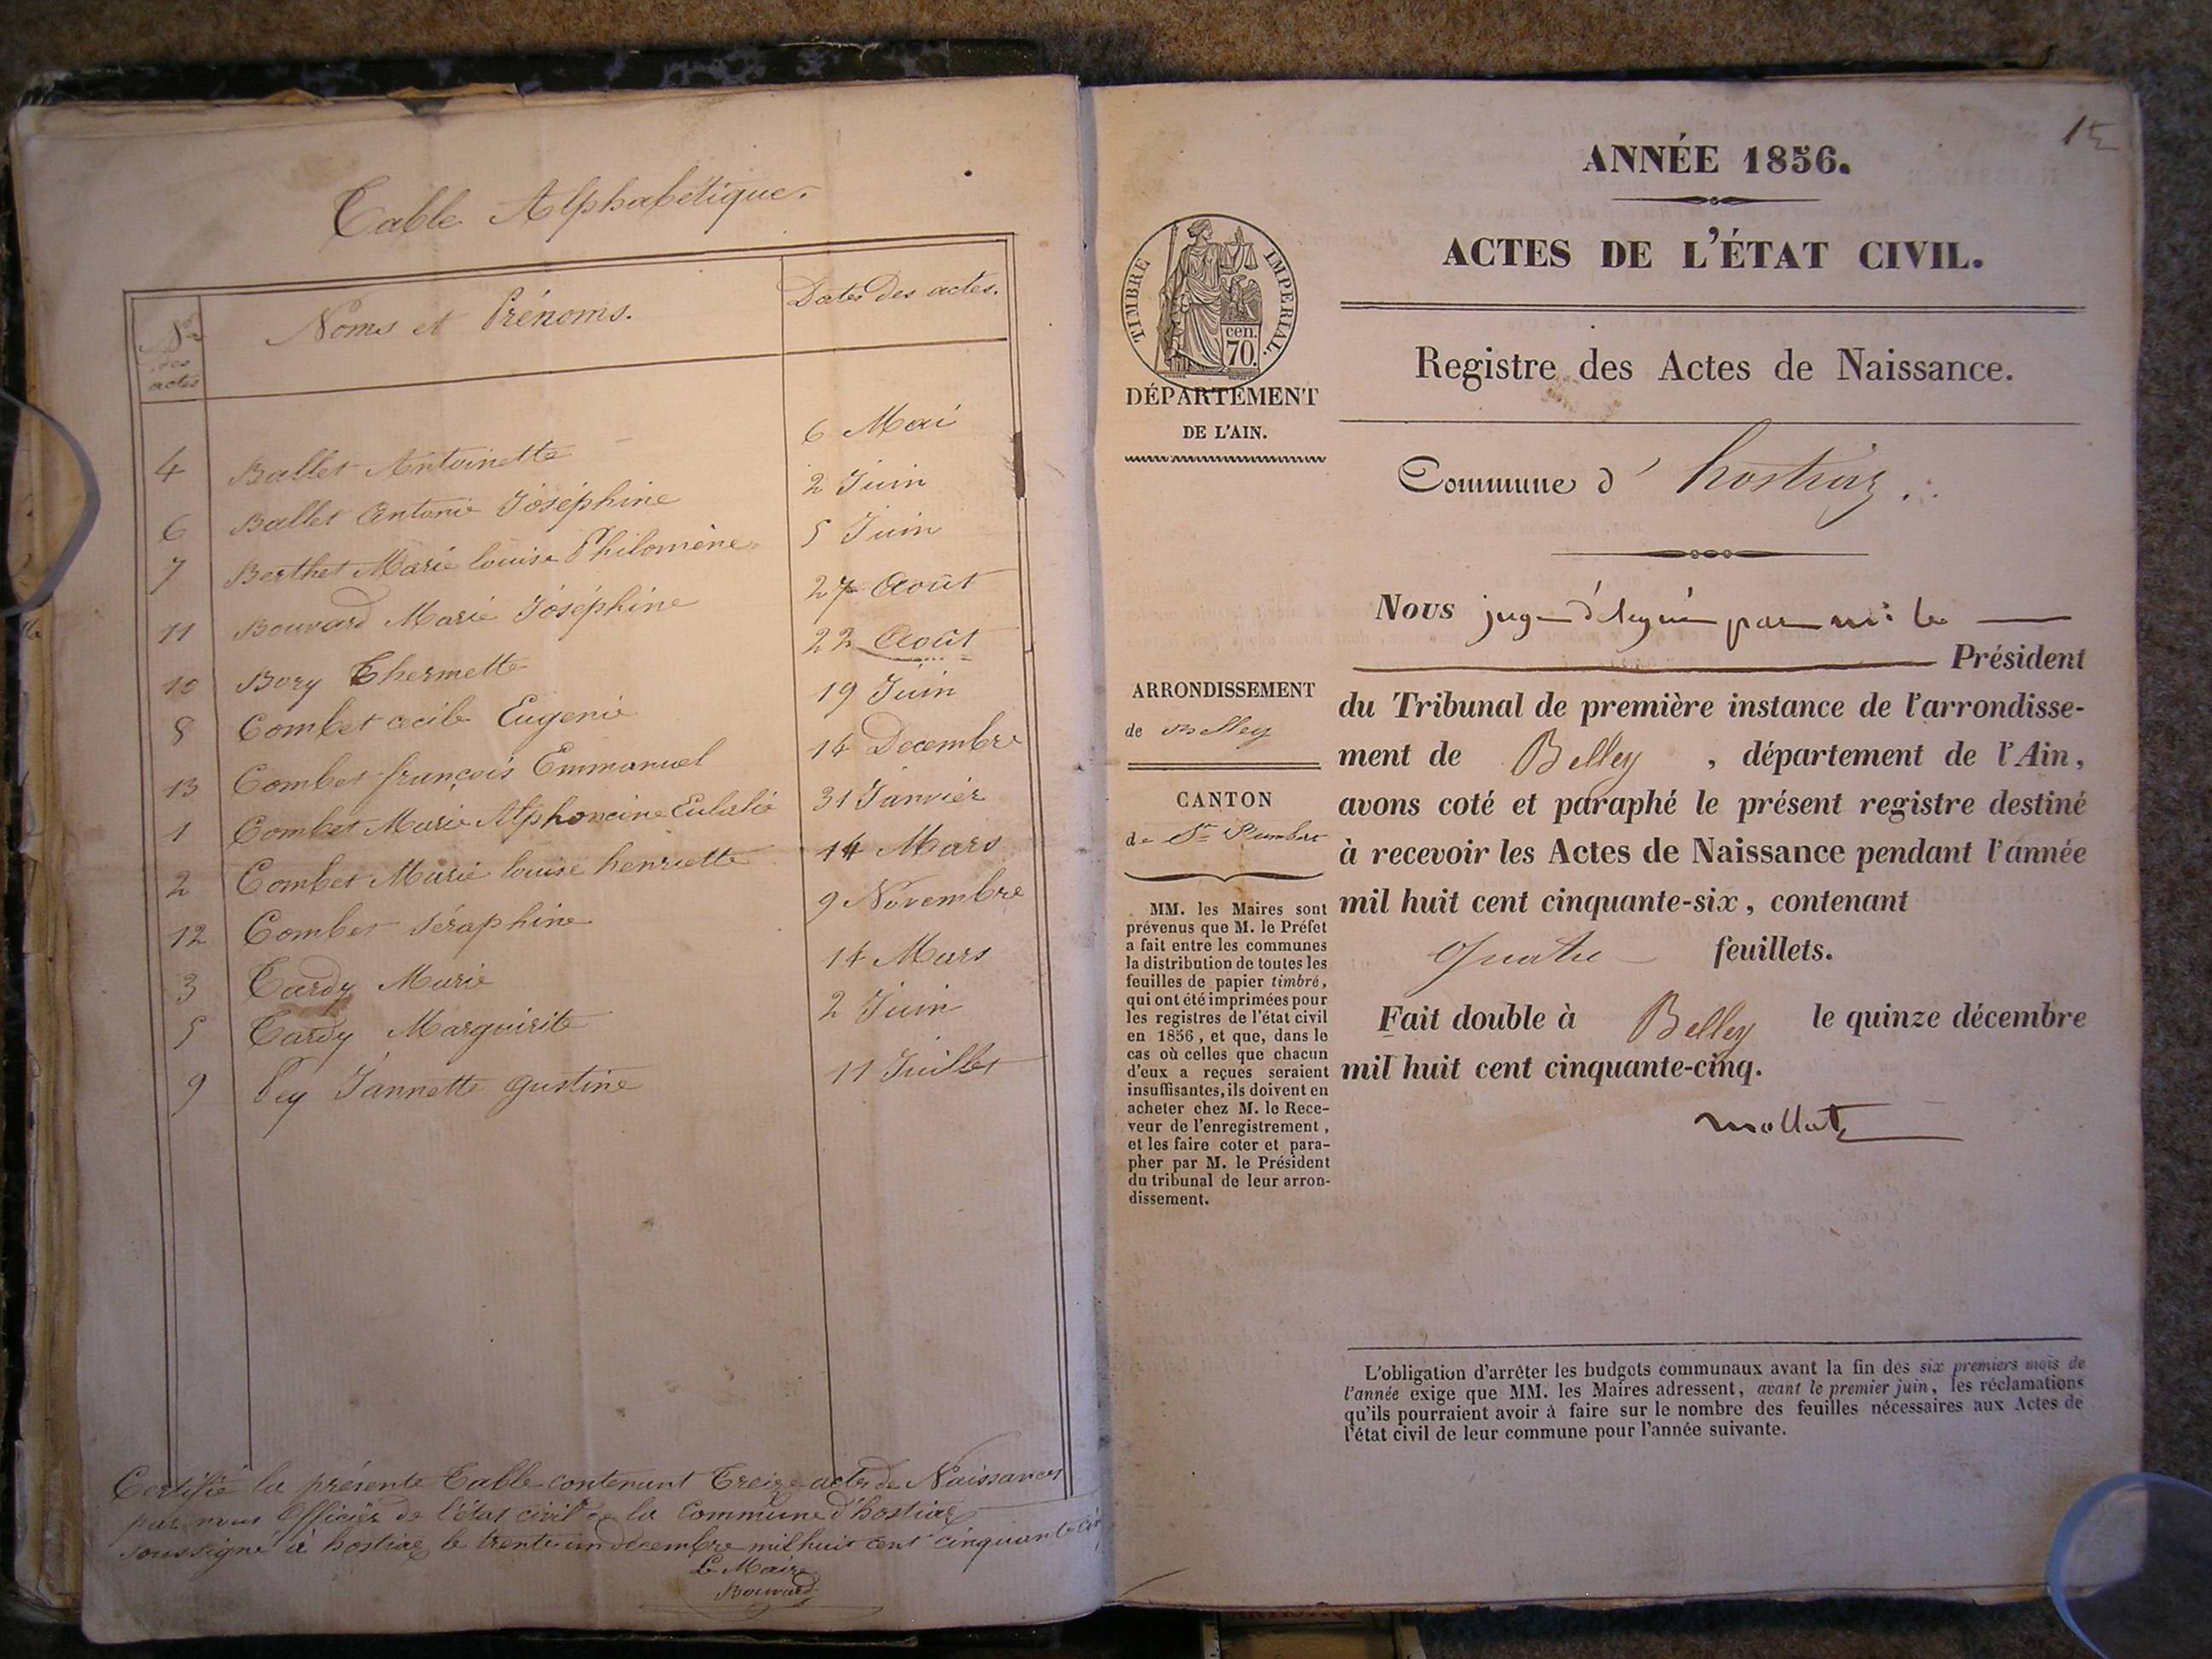 Table Alphabétique.
Nos des actes
Noms et Prénoms.
Dates des actes.
4 Ballet Antoinette 6 Mai
6 Ballet Antonie Joséphine 2 Juin
7 Berthet Marie louise Philomène 5 Juin
11 Bouvard Marie Joséphine 27 Août
10 Bory Thermette 22 Août
8 Combet cecile Eugenie 19 Juin
13 Combet françois Emmanuel 14 Decembre
1 Combet Marie Alphoncine Eulalie 31 Janvier
2 Combet Marie louise henriette 14 Mars
12 Combet Séraphine 9 Novembre
3 Tardy Marie 14 Mars
5 Tardy Marguirite 2 Juin
9 Pey Jannette gustine 11 Juillet
Certifié la présente Table contenant Treize actes de Naissances
par nous Officier de l'état civil de la Commune d'hostiaz
soussigné à hostiaz le trente un decembre mil huit cent cinquante
Le Maire
Bouvard
15
ANNÉE 1856.
ACTES DE L'ÉTAT CIVIL.
TIMBRE IMPERIAL.
cen.
70.
DÉPARTEMENT
DE L'AIN.
Registre des Actes de Naissance.
Commune d' hostiaz.
Nous juge délégué par mr le
Président
ARRONDISSEMENT
de Belley
CANTON
de St Rambert
du Tribunal de première instance de l'arrondisse-
ment de Belley, département de l'Ain,
avons coté et paraphé le présent registre destiné
à recevoir les Actes de Naissance pendant l'année
mil huit cent cinquante-six, contenant
quatre feuillets.
Fait double à Belley le quinze décembre
mil huit cent cinquante-cinq.
mollet
MM. les Maires sont
prévenus que M. le Préfet
a fait entre les communes
la distribution de toutes les
feuilles de papier timbré,
qui ont été imprimées pour
les registres de l'état civil
en 1856, et que, dans le
cas où celles que chacun
d'eux a reçues seraient
insuffisantes, ils doivent en
acheter chez M. le Rece-
veur de l'enregistrement,
et les faire coter et para-
pher par M. le Président
du tribunal de leur arron-
dissement.
L'obligation d'arrêter les budgets communaux avant la fin des six premiers mois de
l'année exige que MM. les Maires adressent, avant le premier juin, les réclamations
qu'ils pourraient avoir à faire sur le nombre des feuilles nécessaires aux Actes de
l'état civil de leur commune pour l'année suivante.